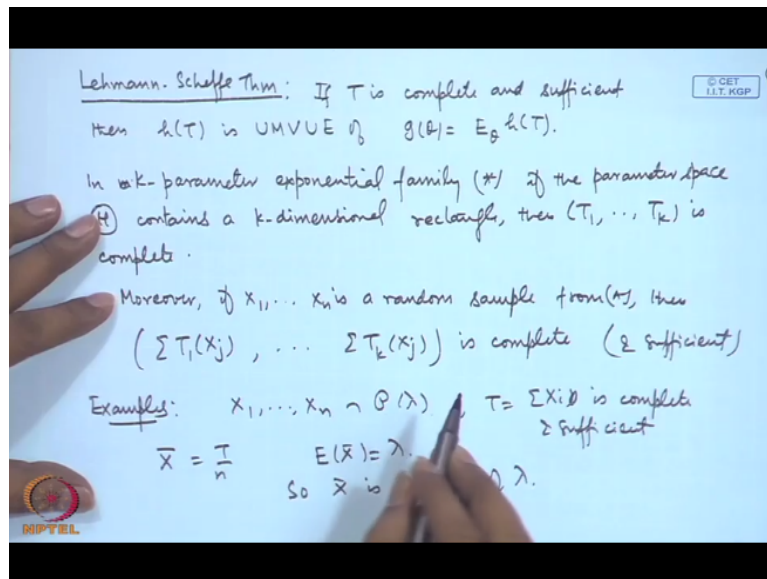 Lehmann-Scheffe Thm: If T is complete and sufficient
© CET
I.I.T. KGP
then h(T) is UMVUE of g(θ) = E_θ h(T).
In a k-parameter exponential family (*) if the parameter space
Ⓗ contains a k-dimensional rectangle, then (T₁, ... Tₖ) is
complete.
Moreover, if X₁, ... Xₙ is a random sample from (*), then
(ΣT₁(Xj), ... ΣTₖ(Xj)) is complete (& sufficient)
Examples: X₁, ..., Xₙ ~ P(λ), T = ΣXi is complete
& sufficient
X̄ = T/n E(X̄) = λ.
So X̄ is λ.
NPTEL